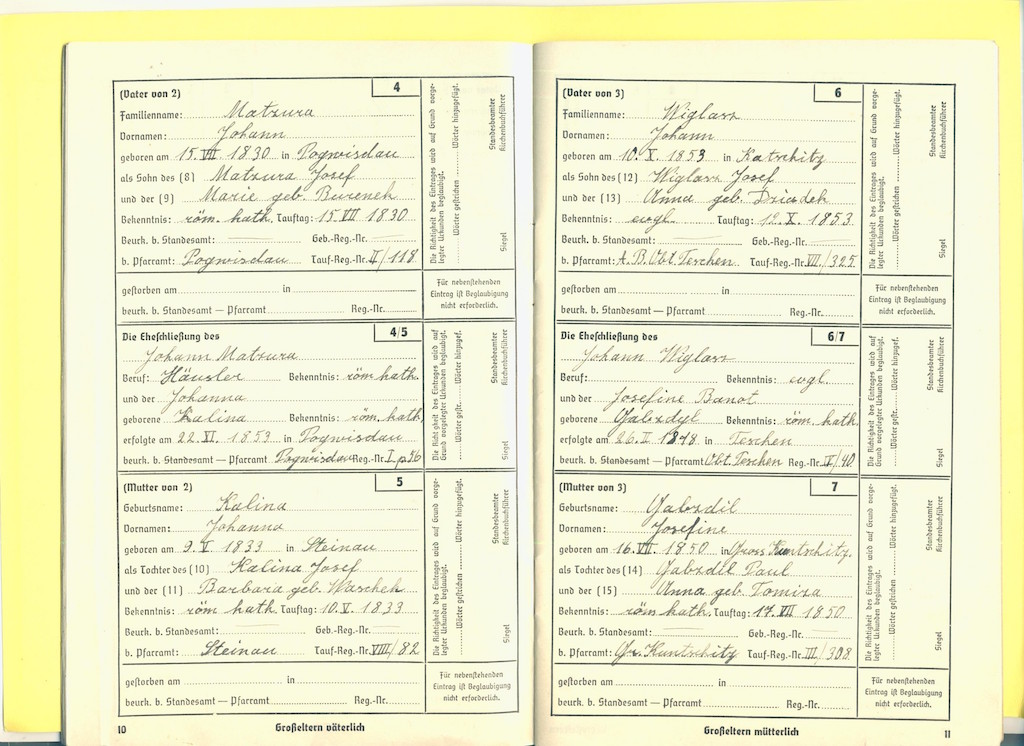 (Vater von 2) 4
Familienname: Matzura
Vornamen: Johann
geboren am 15. VII. 1830 in Pogwisdau
als Sohn des (8) Matzura Josef
und der (9) Marie geb. Bureneh
Bekenntnis: röm. kath. Tauftag: 15. VII 1830
Beurk. b. Standesamt: Geb.-Reg.-Nr.
b. Pfarramt: Pogwisdau Tauf-Reg.-Nr. II/118
Die Richtigkeit des Eintrages wird auf Grund vorge-
legter Urkunden beglaubigt.
Wörter gestrichen Wörter hinzugefügt.
Siegel Standesbeamter
Kirchenbuchführer
gestorben am in
beurk. b. Standesamt — Pfarramt Reg.-Nr.
Für nebenstehenden
Eintrag ist Beglaubigung
nicht erforderlich.
Die Eheschließung des 4/5
Johann Matzura
Beruf: Häusler Bekenntnis: röm. kath.
und der Johanna
geborene Kalina Bekenntnis: röm. kath.
erfolgte am 22. XI. 1853 in Pogwisdau
beurk. b. Standesamt — Pfarramt Pogwisdau Reg.-Nr. I p 26
Die Richtigkeit des Eintrages wird auf
Grund vorgelegter Urkunden beglaubigt.
Wörter gestr. Wörter hinzugef.
Siegel Standesbeamter
Kirchenbuchführer
(Mutter von 2) 5
Geburtsname: Kalina
Vornamen: Johanna
geboren am 9. V. 1833 in Steinau
als Tochter des (10) Kalina Josef
und der (11) Barbara geb. Waschek
Bekenntnis: röm. kath. Tauftag: 10. V. 1833
Beurk. b. Standesamt: Geb.-Reg.-Nr.
b. Pfarramt: Steinau Tauf-Reg.-Nr. VIII/82
Die Richtigkeit des Eintrages wird auf Grund vorge-
legter Urkunden beglaubigt.
Wörter gestrichen Wörter hinzugefügt.
Siegel Standesbeamter
Kirchenbuchführer
gestorben am in
beurk. b. Standesamt — Pfarramt Reg.-Nr.
Für nebenstehenden
Eintrag ist Beglaubigung
nicht erforderlich.
10 Großeltern väterlich
(Vater von 3) 6
Familienname: Wiglarz
Vornamen: Johann
geboren am 10. X. 1853 in Katschitz
als Sohn des (12) Wiglarz Josef
und der (13) Anna geb. Dziadek
Bekenntnis: evgl. Tauftag: 12. X. 1853
Beurk. b. Standesamt: Geb.-Reg.-Nr.
b. Pfarramt: A. B. Obt. Teschen Tauf-Reg.-Nr. VII/325
Die Richtigkeit des Eintrages wird auf Grund vorge-
legter Urkunden beglaubigt.
Wörter gestrichen Wörter hinzugefügt.
Siegel Standesbeamter
Kirchenbuchführer
gestorben am in
beurk. b. Standesamt — Pfarramt Reg.-Nr.
Für nebenstehenden
Eintrag ist Beglaubigung
nicht erforderlich.
Die Eheschließung des 6/7
Johann Wiglarz
Beruf: Bekenntnis: evgl.
und der Josefine Banot
geborene Gabzdil Bekenntnis: röm. kath.
erfolgte am 26. II 1878 in Teschen
beurk. b. Standesamt — Pfarramt Obt. Teschen Reg.-Nr. IV/40
Die Richtigkeit des Eintrages wird auf
Grund vorgelegter Urkunden beglaubigt.
Wörter gestr. Wörter hinzugef.
Siegel Standesbeamter
Kirchenbuchführer
(Mutter von 3) 7
Geburtsname: Gabzdil
Vornamen: Josefine
geboren am 16. VII. 1850 in Gross Kuntschitz
als Tochter des (14) Gabzdil Paul
und der (15) Anna geb. Tomiza
Bekenntnis: röm. kath. Tauftag: 17. VII 1850
Beurk. b. Standesamt: Geb.-Reg.-Nr.
b. Pfarramt: Gr. Kuntschitz Tauf-Reg.-Nr. III/308
Die Richtigkeit des Eintrages wird auf Grund vorge-
legter Urkunden beglaubigt.
Wörter gestrichen Wörter hinzugefügt.
Siegel Standesbeamter
Kirchenbuchführer
gestorben am in
beurk. b. Standesamt — Pfarramt Reg.-Nr.
Für nebenstehenden
Eintrag ist Beglaubigung
nicht erforderlich.
Großeltern mütterlich 11